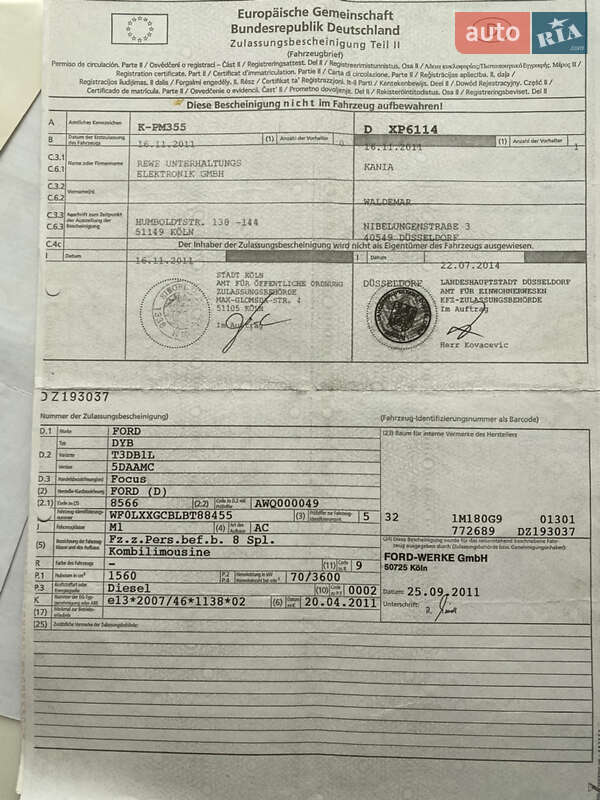 Europäische Gemeinschaft
Bundesrepublik Deutschland
Zulassungsbescheinigung Teil II
(Fahrzeugbrief)
auto RIA.com
Permiso de circulación. Parte II / Osvědčení o registraci – Část II / Registreringsattest. Del II /
Registration certificate. Part II / Certificat d'immatriculation. Partie II / Carta di circolazione. Parte II / Reģistrācijas apliecība. II. daļa /
Diese Bescheinigung nicht im Fahrzeug aufbewahren!
A Amtliches Kennzeichen K-PM355 D XP6114
B Datum der Erstzulassung des Fahrzeugs 16.11.2011 (1) Anzahl der Vorhalter 0 16.11.2011 (1) Anzahl der Vorhalter 1
C.3.1 C.6.1 Name oder Firmenname REWE UNTERHALTUNGS ELEKTRONIK GMBH KANIA
C.3.2 C.6.2 Vorname(n) WALDEMAR
C.3.3 C.6.3 Anschrift zum Zeitpunkt der Ausstellung der Bescheinigung HUMBOLDTSTR. 138 -144 NIBELUNGENSTRABE 3
51149 KÖLN 40549 DÜSSELDORF
C.4c Der Inhaber der Zulassungsbescheinigung wird nicht als Eigentümer des Fahrzeugs ausgewiesen.
I Datum 16.11.2011 I Datum 22.07.2014
STADT KÖLN
AMT FÜR ÖFFENTLICHE ORDNUNG
ZULASSUNGSBEHÖRDE
MAX-GLOMSDA-STR. 4
51105 KÖLN
Im Auftrag
DÜSSELDORF LANDESHAUPTSTADT DÜSSELDORF
AMT FÜR EINWOHNERWESEN
KFZ-ZULASSUNGSBEHÖRDE
Im Auftrag
Herr Kovacevic
DZ193037
Nummer der Zulassungsbescheinigung) (Fahrzeug-Identifizierungsnummer als Barcode)
D.1 Marke FORD
Typ DYB
D.2 Variante T3DB1L
Version 5DAAMC
D.3 Handelsbezeichnung(en) Focus
(2) Hersteller-Kurzbezeichnung FORD (D)
(2.1) Code zu (2) 8566 (2.2) Code zu D.2 mit Prüfziffer AWQ000049
Fahrzeug-Identifizierungsnummer WF0LXXGCBLBT88455 (3) Prüfziffer zur Fahrzeug-Identifizierungsnummer 5
J Fahrzeugklasse M1 (4) Art des Aufbaus AC
(5) Bezeichnung der Fahrzeugklasse und des Aufbaus Fz.z.Pers.bef.b. 8 Spl.
Kombilimousine
R Farbe des Fahrzeugs – (11) Code zu R 9
P.1 Hubraum in cm³ 1560 P.2 P.4 Nennleistung in kW 70/3600
P.3 Kraftstoffart oder Energiequelle Diesel (10) Code zu P.3 0002
K Nummer der EG-Typgenehmigung oder ABE e13*2007/46*1138*02 (6) Datum zu K 20.04.2011
(17) Merkmal zur Betriebserlaubnis
(25) Zusätzliche Vermerke der Zulassungsbehörde:
(23) Raum für interne Vermerke des Herstellers
32 1M180G9 01301
772689 DZ193037
FORD-WERKE GmbH
50725 Köln
Datum: 25.09.2011
Unterschrift: